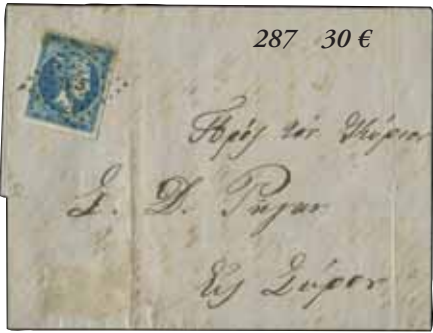 287 30 €
Πρός τόν Κύριον
Σ. Δ. Ρήγαν
Εἰς Σύρον